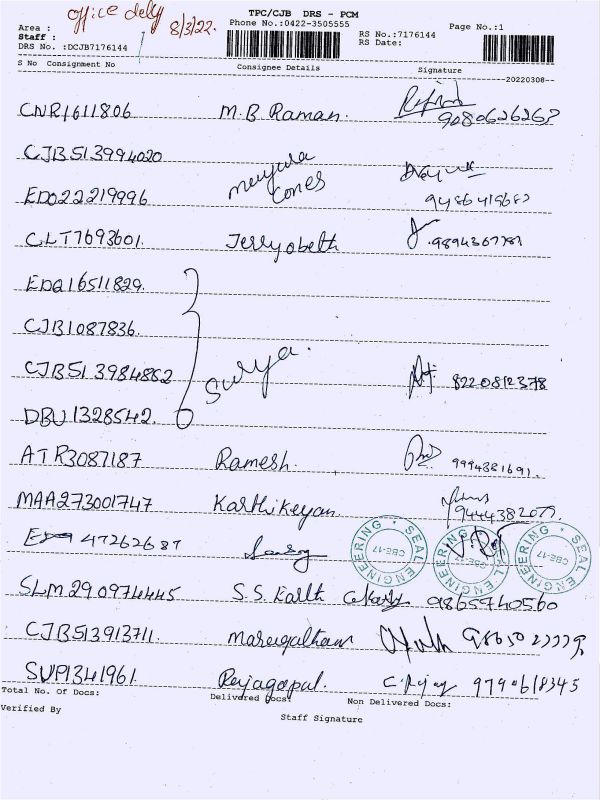 office dely 8/3/22.
TPC/CJB DRS - PCM
Area :
Phone No.:0422-3505555
Page No.:1
Staff :
RS No.:7176144
DRS No. :DCJB7176144
RS Date:
S No Consignment No Consignee Details Signature
20220308
CNR1611806 M.B Raman. 9080626267
CJB513994020
ED022219996 Cones
CLT7693601. Jerryobeth
EDQ16511829.
CJB1087836.
CJB513984862 Surya. 8220812378
DBU1328542.
ATR3087187 Ramesh. 9994381691.
MAA273001747 Karthikeyan. 9444382077.
47262687
SEAL ENGINEERING CBE-17
SEAL ENGINEERING CBE-17
SEAL ENGINEERING CBE-17
SLM290974445 S.S. Karth 9865740560
CJB513913711.
SUP1341961. Rajagopal. 9790618345
Total No. Of Docs: Delivered Docs: Non Delivered Docs:
Verified By
Staff Signature